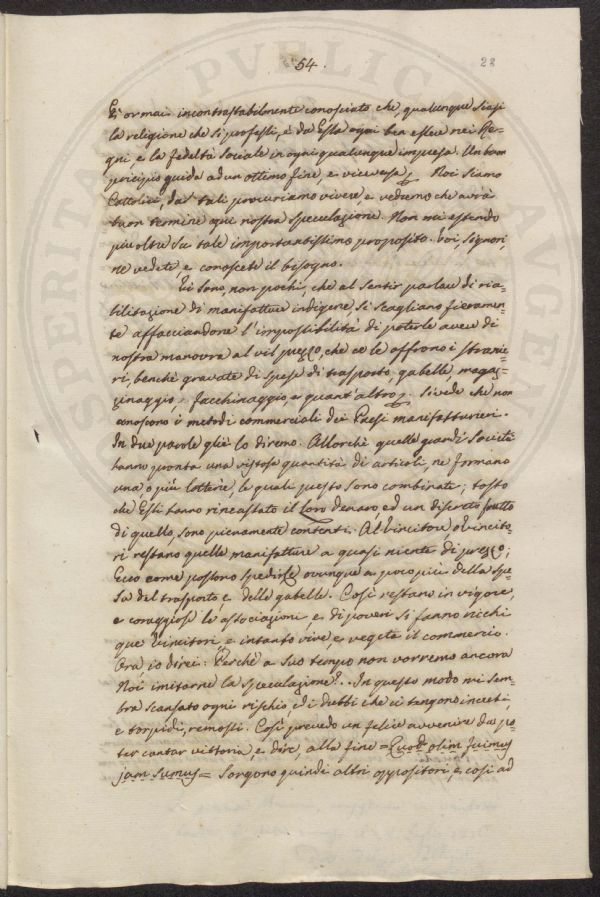 54.
28
E' ormai incontrastabilmente conosciuto che, qualunque siasi
la religione che si professi, è da Essa ogni ben essere nei Re-
gni, e la fedeltà sociale in ogni qualunque impresa. Un buon
principio guida ad un ottimo fine, e viceversa. Noi siamo
Cattolici, da tali procuriamo vivere, e vedremo che avrà
buon termine ogni nostra speculazione. Non mi estendo
più oltre su tale importantissimo proposito. Voi, Signori,
ne vedete, e conoscete il bisogno.
Vi sono, non pochi, che al sentir parlare di ria-
bilitazione di manifatture indigene si scagliano fieramen-
te affacciandone l'impossibilità di poterle avere di
nostra manovra al vil prezzo, che ce le offrono i stranie-
ri, benchè gravate di spese di trasporto, gabelle, magaz-
zinaggio, facchinaggio, e quant'altro. Si vede che non
conoscono i metodi commerciali dei Paesi manifatturieri.
In due parole glie lo diremo. Allorchè quelle grandi Società
hanno pronta una vistosa quantità di articoli, ne formano
una, o più lotterie, le quali presto sono combinate; tosto
che Essi hanno rincassato il loro denaro, ed un discreto frutto
di quello, sono pienamente contenti. Al Vincitore, o Vincito-
ri restano quelle manifatture a quasi niente di prezzo;
Ecco come possono spedirle ovunque a poco più della spe-
sa del trasporto, e delle gabelle. Così restano in vigore,
e coraggiose le associazioni, e di poveri si fanno ricchi
que' Vincitori, e intanto vive, e vegeta il commercio.
Ora, io direi: Perchè a suo tempo non vorremo ancora
Noi imitarne la speculazione?.. In questo modo mi sem-
bra scansato ogni rischio, ed i dubbi che ci tengono incerti,
e torpidi, remossi. Così prevedo un felice avvenire da po-
ter cantar vittoria, e dire, alla fine = Quod olim fuimus
jam sumus = Sorgono quindi altri oppositori, e così ad
PUBLICAE
AUGEN
PROSPERITATI